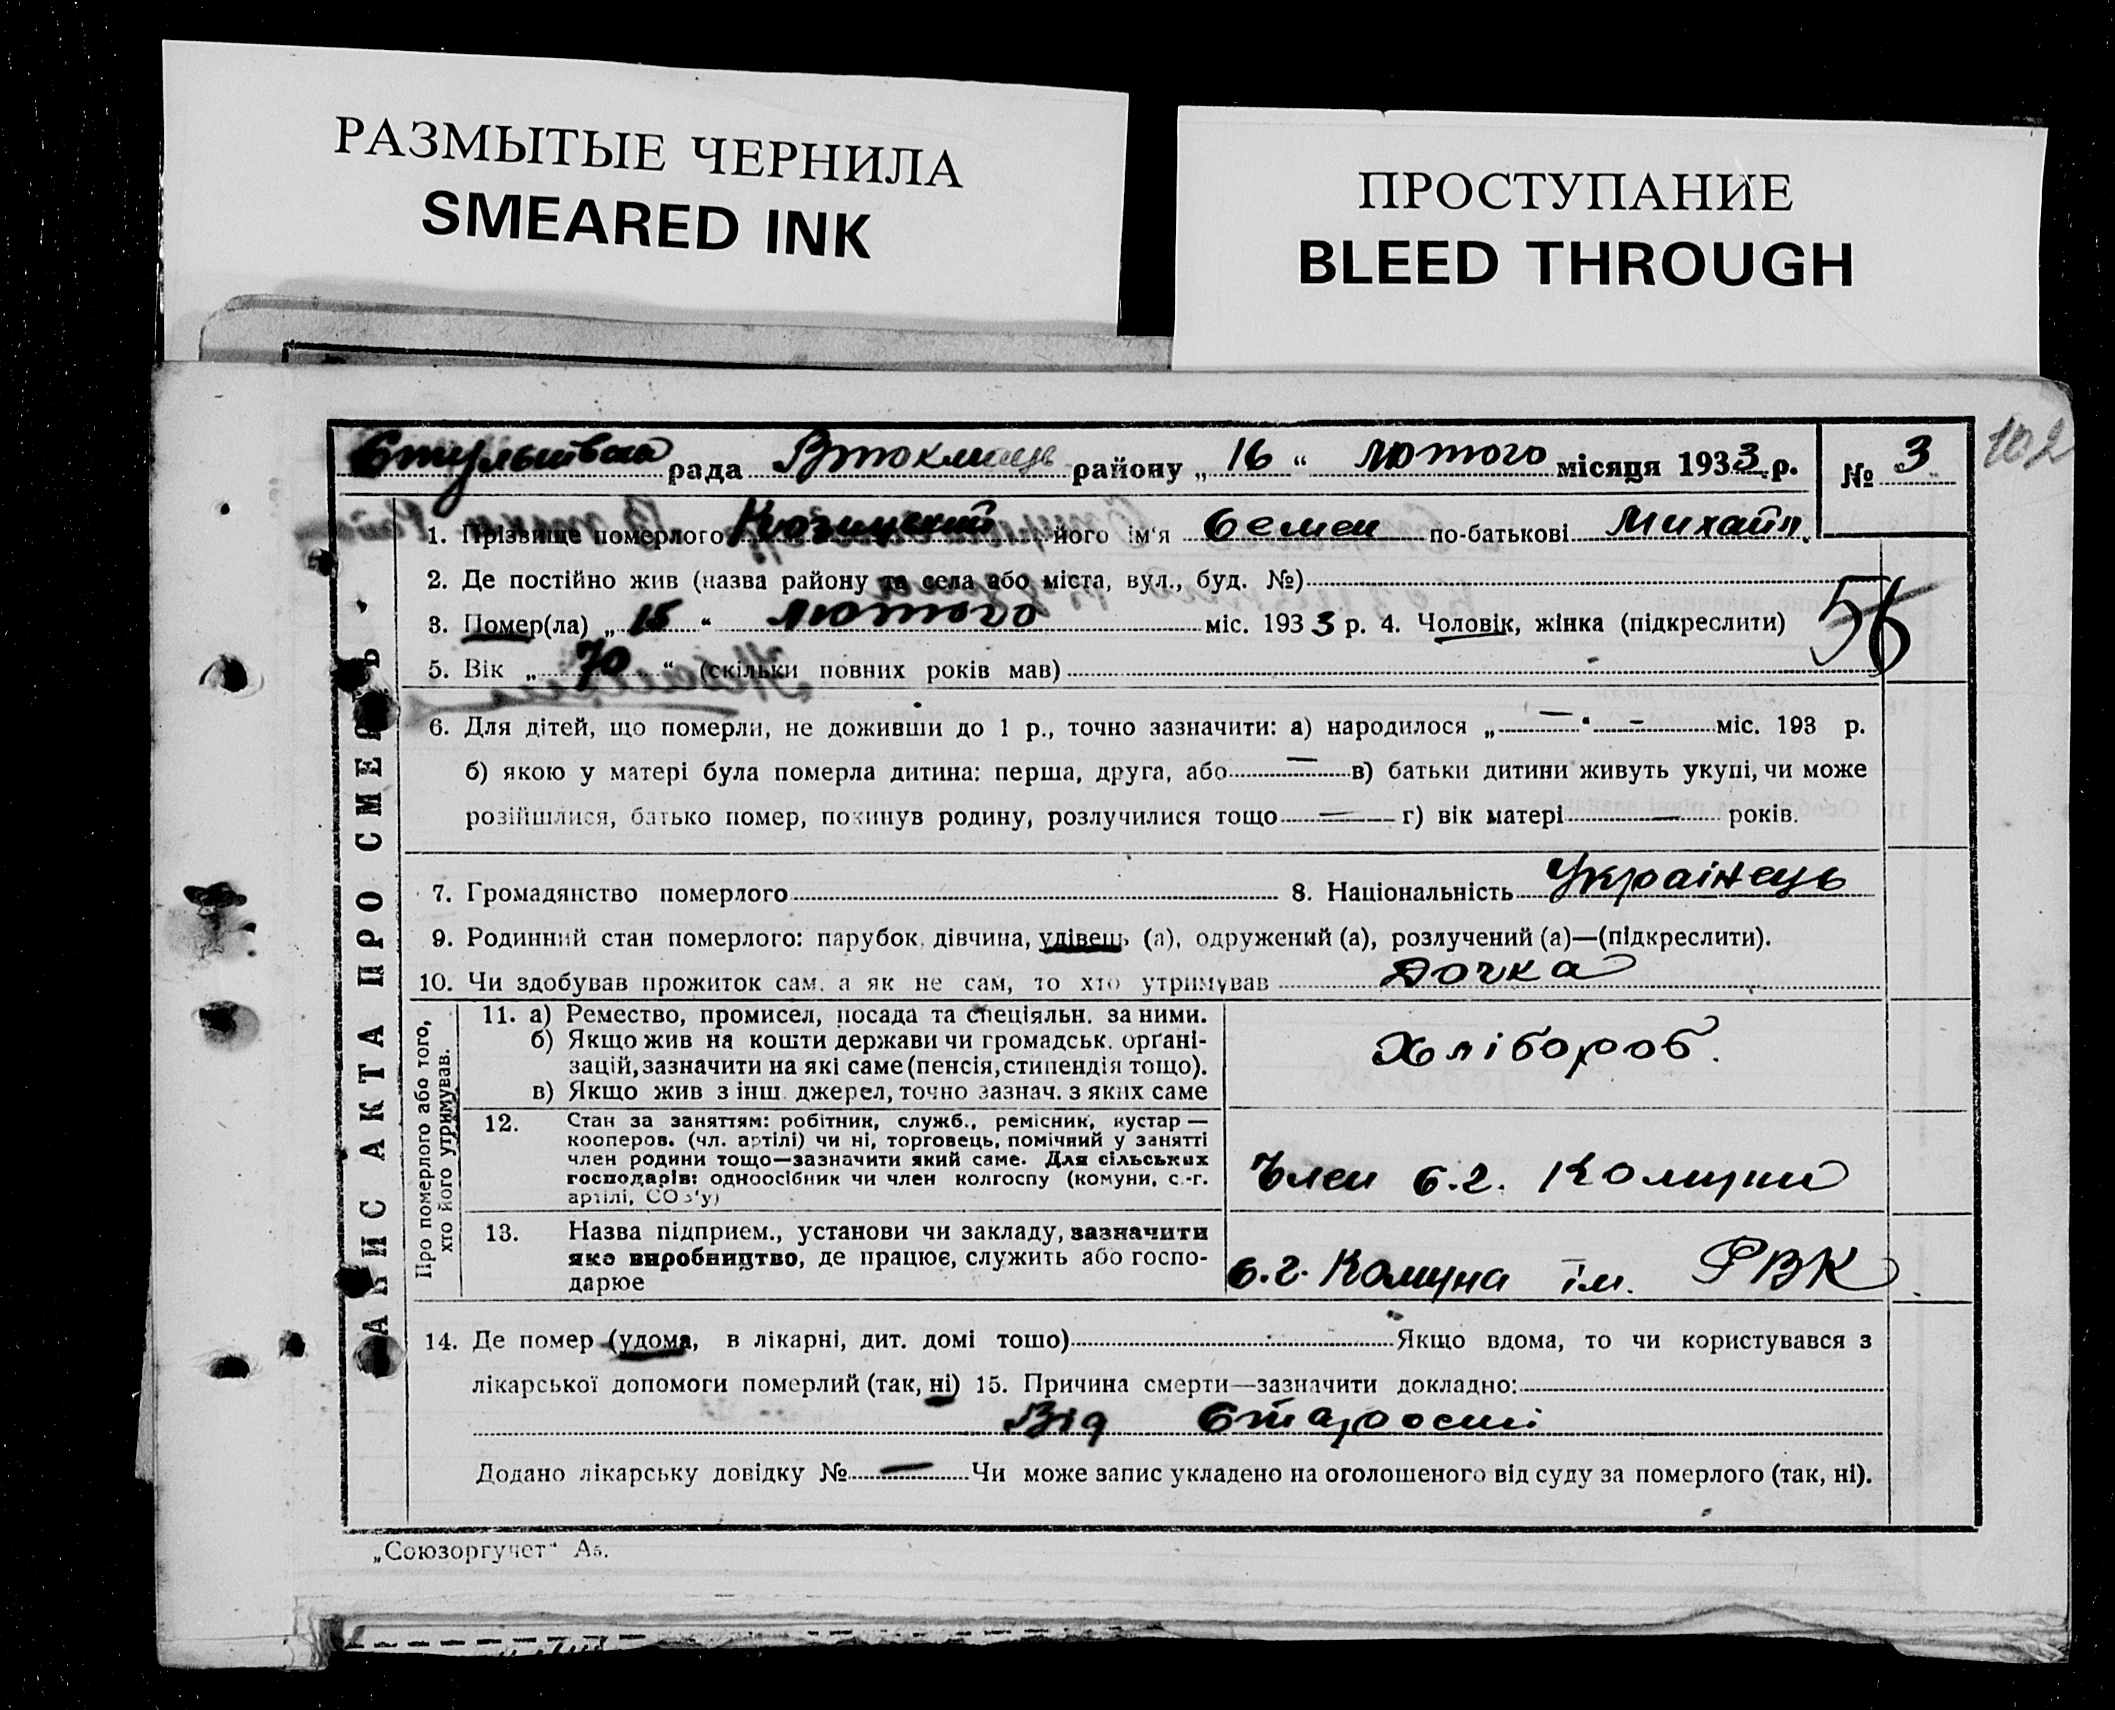 РАЗМЫТЫЕ ЧЕРНИЛА
SMEARED INK
ПРОСТУПАНИЕ
BLEED THROUGH
рада району „ 16 “ лютого місяця 1933 р. № 3
102
1. Прізвище померлого його ім'я Семен по-батькові Михайл.
2. Де постійно жив (назва району та села або міста, вул., буд. №)
56
3. Помер(ла) „ 15 “ лютого міс. 1933 р. 4. Чоловік, жінка (підкреслити)
5. Вік „ 70 “ (скільки повних років мав)
6. Для дітей, що померли, не доживши до 1 р., точно зазначити: а) народилося „ — “ — міс. 193 р.
б) якою у матері була померла дитина: перша, друга, або — в) батьки дитини живуть укупі, чи може
розійшлися, батько помер, покинув родину, розлучилися тощо — г) вік матері — років.
7. Громадянство померлого 8. Національність Українець
9. Родинний стан померлого: парубок, дівчина, удівець (а), одружений (а), розлучений (а)—(підкреслити).
10. Чи здобував прожиток сам, а як не сам, то хто утримував Дочка
ЗАПИС АКТА ПРО СМЕРТЬ
Про померлого або того,
хто його утримував.
11. а) Ремество, промисел, посада та спеціяльн. за ними.
б) Якщо жив на кошти держави чи громадськ. орґані-
зацій, зазначити на які саме (пенсія, стипендія тощо).
в) Якщо жив з інш. джерел, точно зазнач. з яких саме
Хлібороб.
12. Стан за заняттям: робітник, служб., ремісник, кустар —
кооперов. (чл. артілі) чи ні, торговець, помічний у занятті
член родини тощо—зазначити який саме. Для сільських
господарів: одноосібник чи член колгоспу (комуни, с.-г.
артілі, СОЗ'у)
Член с.г. Комуни
13. Назва підприєм., установи чи закладу, зазначити
яке виробництво, де працює, служить або госпо-
дарює
с.г. Комуна ім. РВК
14. Де помер (удома, в лікарні, дит. домі тощо) Якщо вдома, то чи користувався з
лікарської допомоги померлий (так, ні) 15. Причина смерти—зазначити докладно:
Від Старости
Додано лікарську довідку № — Чи може запис укладено на оголошеного від суду за померлого (так, ні).
„Союзоргучет“ А5.